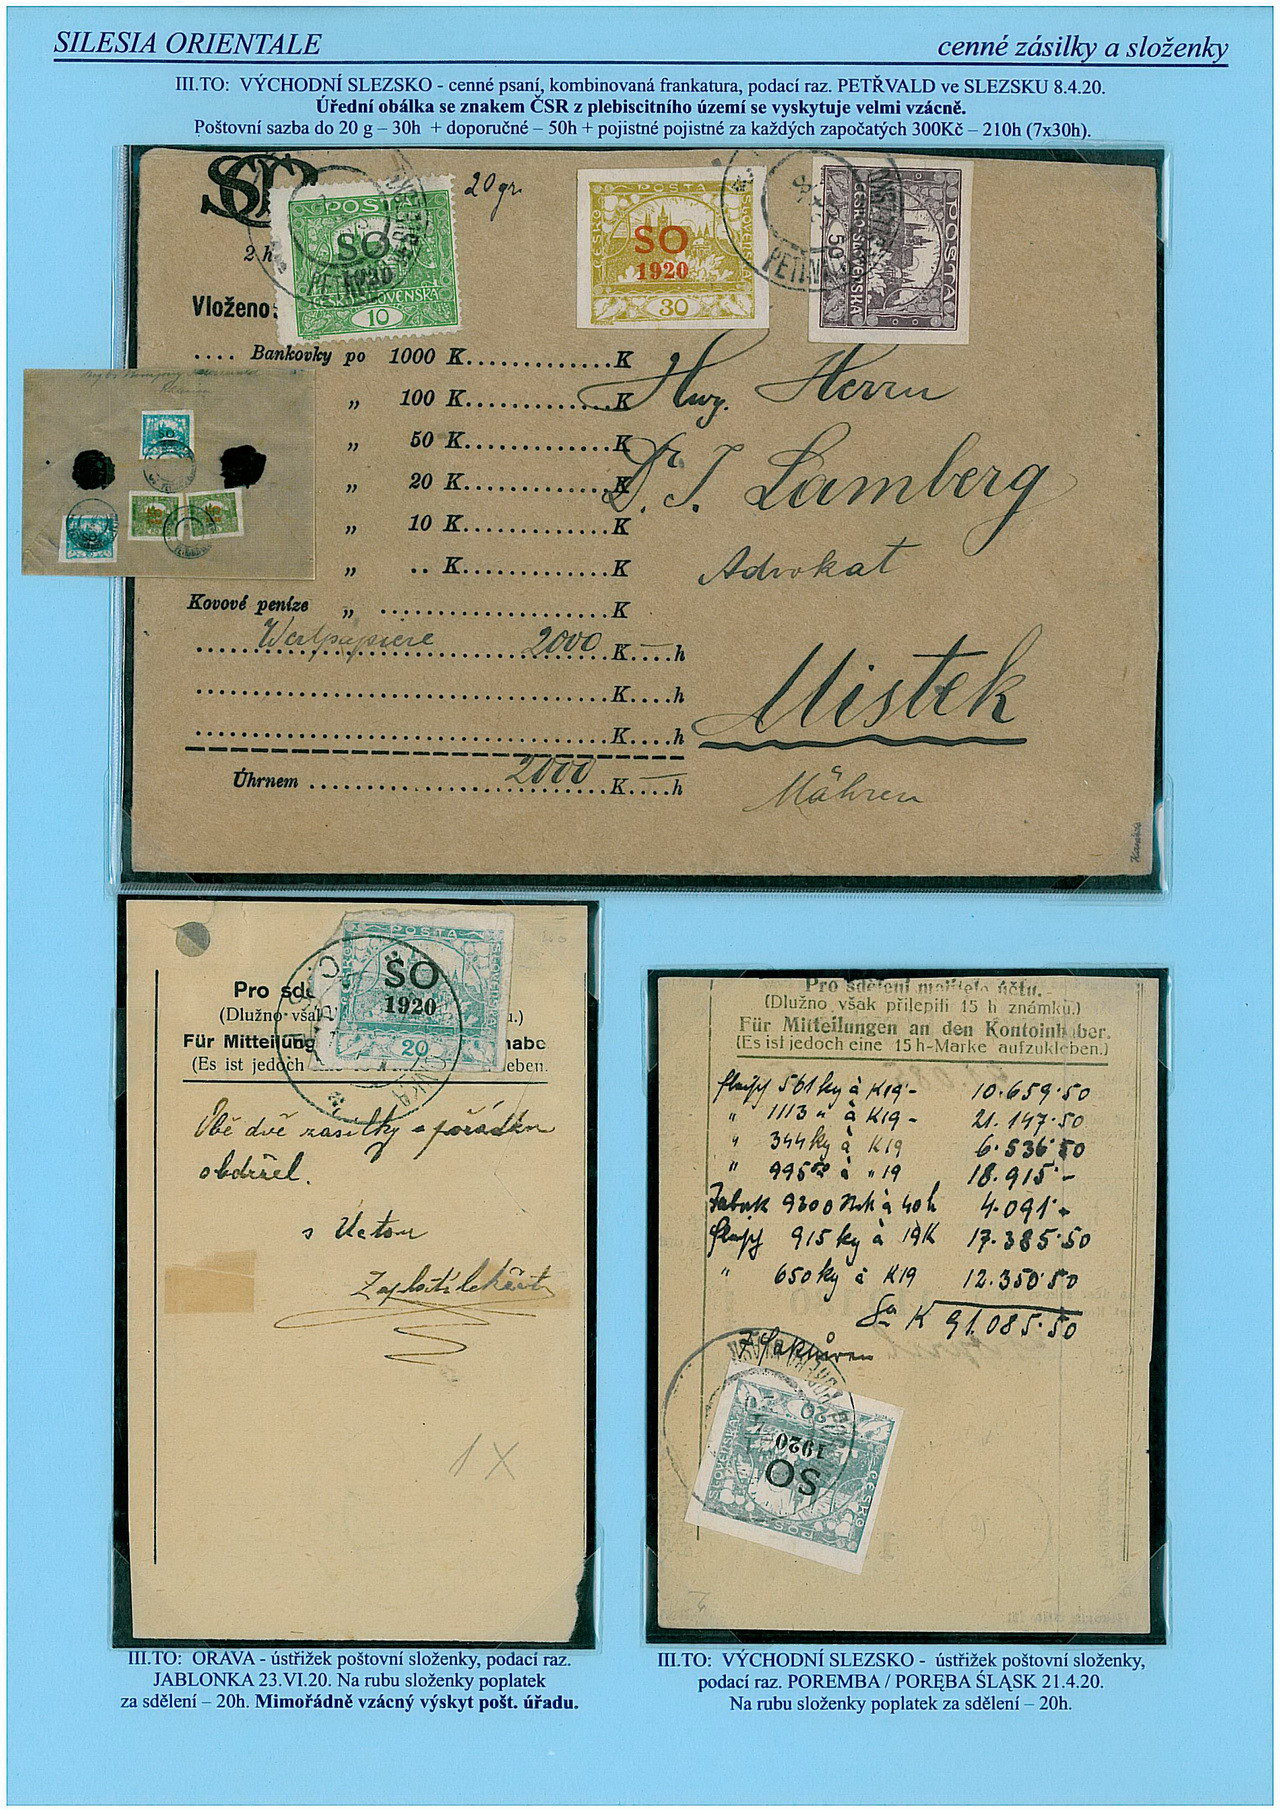 SILESIA ORIENTALE
cenné zásilky a složenky
III.TO: VÝCHODNÍ SLEZSKO - cenné psaní, kombinovaná frankatura, podací raz. PETŘVALD ve SLEZSKU 8.4.20.
Úřední obálka se znakem ČSR z plebiscitního území se vyskytuje velmi vzácně.
Poštovní sazba do 20 g – 30h + doporučné – 50h + pojistné pojistné za každých započatých 300Kč – 210h (7x30h).
20 gr.
POSTA
SO
1920
ČESKOSLOVENSKA
10
POSTA
ČESKO SLOVENSKA
SO
1920
30
POSTA
ČESKO-SLOVENSKA
50
2 h
Vloženo:
.... Bankovky po 1000 K..............K
„ 100 K..............K
„ 50 K..............K
„ 20 K..............K
„ 10 K..............K
„ .. K..............K
Kovové peníze „ ......................K
Wertpapiere 2000 K....h
K....h
K....h
Úhrnem 2000 K....h
Herrn
Dr. J. Lamberg
Advokat
Mistek
Mähren
POSTA
SO
1920
20
Pro sdě
(Dlužno však
Für Mitteilung
habe
(Es ist jedoch eine
leben.
Obě dvě zásilky v pořádku
obdržel.
s Úctou
1X
Pro sdělení majitele účtu.
(Dlužno však přilepiti 15 h známku.)
Für Mitteilungen an den Kontoinhaber.
(Es ist jedoch eine 15 h-Marke aufzukleben.)
561 kg à K19- 10.659·50
„ 1113 „ à K19- 21.147·50
„ 344 kg à K19 6.536·50
„ 995 à „ 19 18.915-
9200 à 40h 4.091-
915 kg à 19K 17.385·50
„ 650 kg à K19 12.350·50
Sa K 91.085·50
ČESKO SLOVENSKA
POSTA
SO
1920
III.TO: ORAVA - ústřižek poštovní složenky, podací raz.
JABLONKA 23.VI.20. Na rubu složenky poplatek
za sdělení – 20h. Mimořádně vzácný výskyt pošt. úřadu.
III.TO: VÝCHODNÍ SLEZSKO - ústřižek poštovní složenky,
podací raz. POREMBA / PORĘBA ŚLĄSK 21.4.20.
Na rubu složenky poplatek za sdělení – 20h.